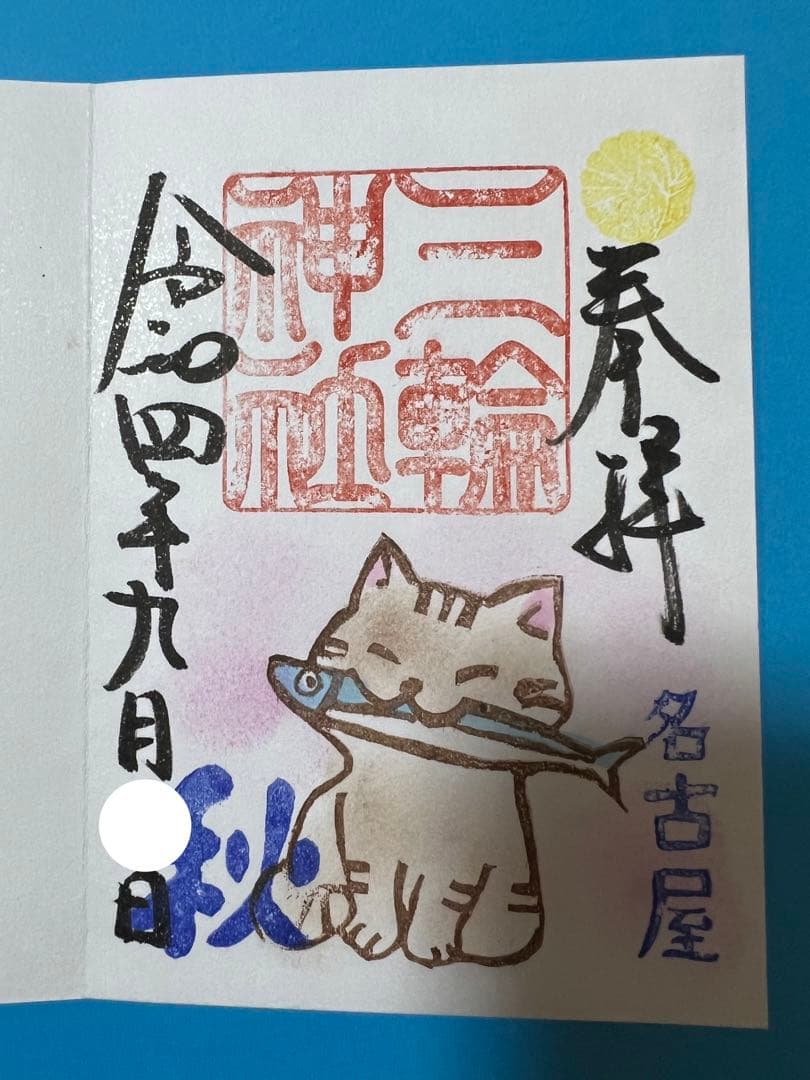 奉拝
名古屋
三輪
神社
秋
令和四年九月
日